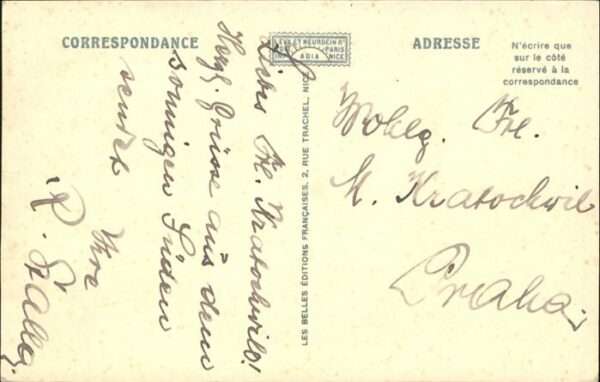 CORRESPONDANCE
LEVY ET NEURDEIN Rs
PARIS
IMP. ADIA NICE
ADRESSE
N'écrire que
sur le côté
réservé à la
correspondance
LES BELLES ÉDITIONS FRANÇAISES, 2, RUE TRACHEL, NICE
Liebs Frl. Kratochwil!
Herzl. Grüsse aus dem
sonnigen Süden
sendet Ihre
Wohlg. Frl.
M. Kratochwil
Praha.